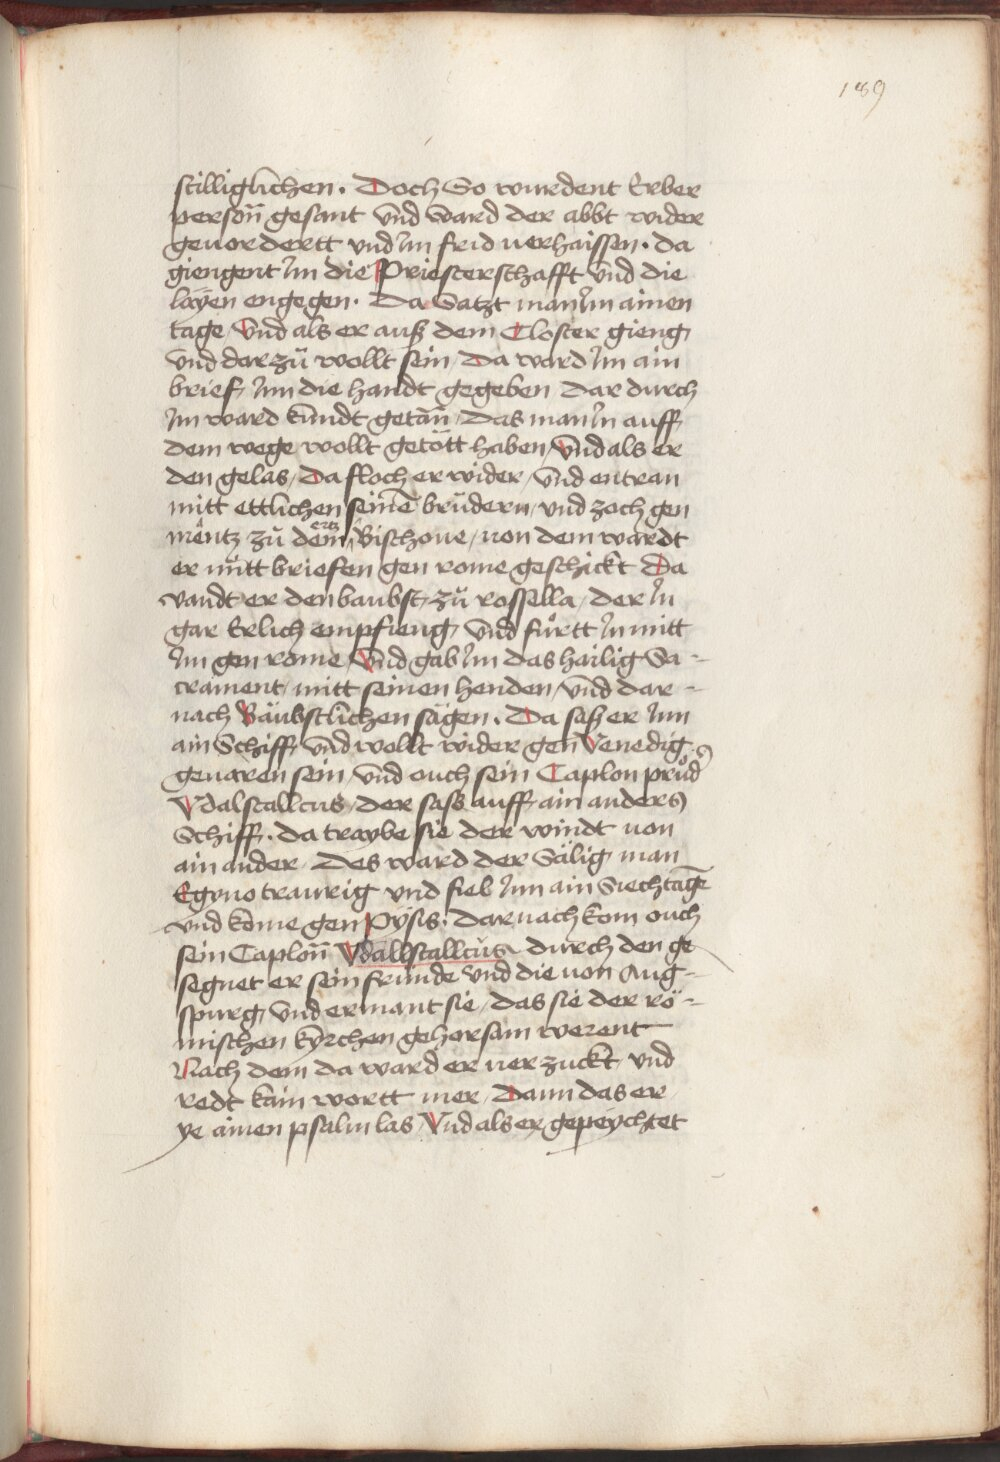 189
stilliglichen. Doch So wurdent Erber
persoñ gesant vnd ward der abbt wider
geuordertt vnd Im frid uerhaissen. da
giengent Im die Priesterschafft vnd die
layen engegen. Da Satzt man Im ainen
tage Vnd als er auß dem Closter gieng
vnd darzů wollt sein / Da ward Im ain
brief / Inn die handt gegeben Dar durch
Im ward kundt getañ / Das man In auff
dem wege wollt getött haben / Vnd als er
den gelas / Da floch er wider / vnd entran
mitt ettlichen seinē brüdern / vnd zoch gen
mentz zů dem ertz Bischoue / uon dem wardt
er mitt briefen gen rome geschickt Da
vandt er den baubst / zů rossella / der In
gar Erlich empfieng / vnd fůrtt In mitt
Im gen rome / Vnd gab Im das hailig Sa-
crament / mitt seinen henden / vnd dar-
nach Bäubstlichen sägen. Da saß er Inn
ain Schiff / vnd wollt wider gen Venedig
geuaren sein / vnd ouch sein Caplon průd'
Vdalstallcus / der saß auff ain anders
Schiff. da traybe sie der windt uon
ain ander / Des ward der Sälig man
Egyno traurig vnd fiel Inn ain Siechtagē
vnd kome gen Pysis. Darnach kom ouch
sein Caplon̄ Vdallstallcus / durch den ge
segnet er sein fründe vnd die uon Aug-
spurg / vnd ermant sie / das sie der rö-
mischen kyrchen gehorsam werent
Nach dem da ward er uerzuckt / vnd
redt kain wortt mer / Dann das er
ye ainen psalm las / Vnd als er gepeychtet